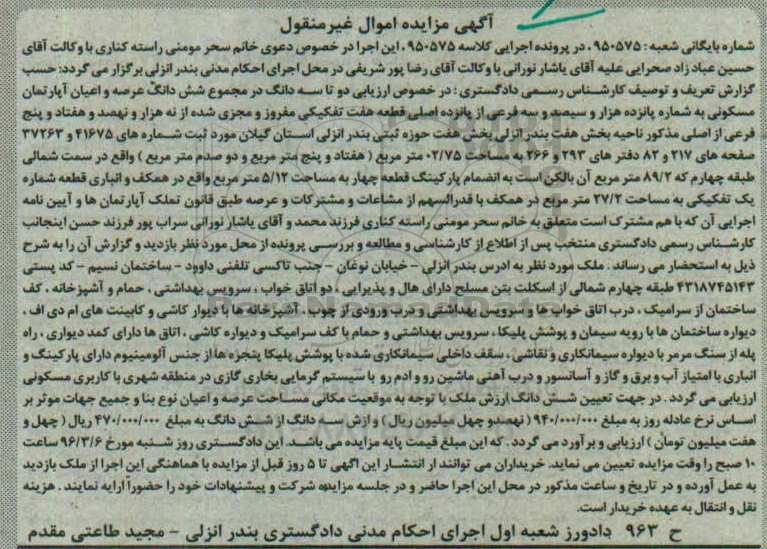 آگهی مزایده اموال غیرمنقول
شماره بایگانی شعبه : ۹۵۰۵۷۵ ، در پرونده اجرایی کلاسه ۹۵۰۵۷۵ ، این اجرا در خصوص دعوی خانم سحر مومنی راسته کناری با وکالت آقای
حسین عباد زاد صحرایی علیه آقای یاشار نورانی با وکالت آقای رضا پور شریفی در محل اجرای احکام مدنی بندر انزلی برگزار می گردد: حسب
گزارش تعریف و توصیف کارشناس رسمی دادگستری : در خصوص ارزیابی دو تا سه دانگ در مجموع شش دانگ عرصه و اعیان آپارتمان
مسکونی به شماره پانزده هزار و سیصد و سه فرعی از پانزده اصلی قطعه هفت تفکیکی مفروز و مجزی شده از نه هزار و نهصد و هفتاد و پنج
فرعی از اصلی مذکور ناحیه بخش هفت بندر انزلی بخش هفت حوزه ثبتی بندر انزلی استان گیلان مورد ثبت شماره های ۴۱۶۷۵ و ۳۷۲۶۳
صفحه های ۲۱۷ و ۸۲ دفتر های ۲۹۳ و ۲۶۶ به مساحت ۰۲/۷۵ متر مربع ( هفتاد و پنج متر مربع و دو صدم متر مربع ) واقع در سمت شمالی
طبقه چهارم که ۸۹/۲ متر مربع آن بالکن است به انضمام پارکینگ قطعه چهار به مساحت ۵/۱۲ متر مربع واقع در همکف و انباری قطعه شماره
یک تفکیکی به مساحت ۲۷/۲ متر مربع در همکف با قدرالسهم از مشاعات و مشترکات و عرصه طبق قانون تملک آپارتمان ها و آیین نامه
اجرایی آن که با هم مشترک است متعلق به خانم سحر مومنی راسته کناری فرزند محمد و آقای یاشار نورانی سراب پور فرزند حسن اینجانب
کارشناس رسمی دادگستری منتخب پس از اطلاع از کارشناسی و مطالعه و بررسی پرونده از محل مورد نظر بازدید و گزارش آن را به شرح
ذیل به استحضار می رساند . ملک مورد نظر به ادرس بندر انزلی – خیابان نوغان – جنب تاکسی تلفنی داوود – ساختمان نسیم – کد پستی
۴۳۱۸۷۴۵۱۴۳ طبقه چهارم شمالی از اسکلت بتن مسلح دارای هال و پذیرایی ، دو اتاق خواب ، سرویس بهداشتی ، حمام و آشپزخانه . کف
ساختمان از سرامیک ، درب اتاق خواب ها و سرویس بهداشتی و درب ورودی از چوب . آشپزخانه ها با دیوار کاشی و کابینت های ام دی اف ،
دیواره ساختمان ها با رویه سیمان و پوشش پلیکا ، سرویس بهداشتی و حمام با کف سرامیک و دیواره کاشی ، اتاق ها دارای کمد دیواری ، راه
پله از سنگ مرمر با دیواره سیمانکاری و نقاشی ، سقف داخلی سیمانکاری شده با پوشش پلیکا پنجره ها از جنس آلومینیوم دارای پارکینگ و
انباری با امتیاز آب و برق و گاز و آسانسور و درب آهنی ماشین رو و ادم رو با سیستم گرمایی بخاری گازی در منطقه شهری با کاربری مسکونی
ارزیابی می گردد . در جهت تعیین شش دانگ ارزش ملک با توجه به موقعیت مکانی مساحت عرصه و اعیان نوع بنا و جمیع جهات موثر بر
اساس نرخ عادله روز به مبلغ ۹۴۰/۰۰۰/۰۰۰ ( نهصدو چهل میلیون ریال ) و ازش سه دانگ از شش دانگ به مبلغ ۴۷۰/۰۰۰/۰۰۰ ریال ( چهل و
هفت میلیون تومان ) ارزیابی و برآورد می گردد . که این مبلغ قیمت پایه مزایده می باشد. این دادگستری روز شنبه مورخ ۹۶/۳/۶ ساعت
۱۰ صبح را وقت مزایده تعیین می نماید. خریداران می توانند از انتشار این آگهی تا ۵ روز قبل از مزایده با هماهنگی این اجرا از ملک بازدید
به عمل آورده و در تاریخ و ساعت مذکور در محل این اجرا حاضر و در جلسه مزایده شرکت و پیشنهادات خود را حضوراً ارایه نمایند . هزینه
نقل و انتقال به عهده خریدار است.
ح ۹۶۳ دادورز شعبه اول اجرای احکام مدنی دادگستری بندر انزلی – مجید طاعتی مقدم